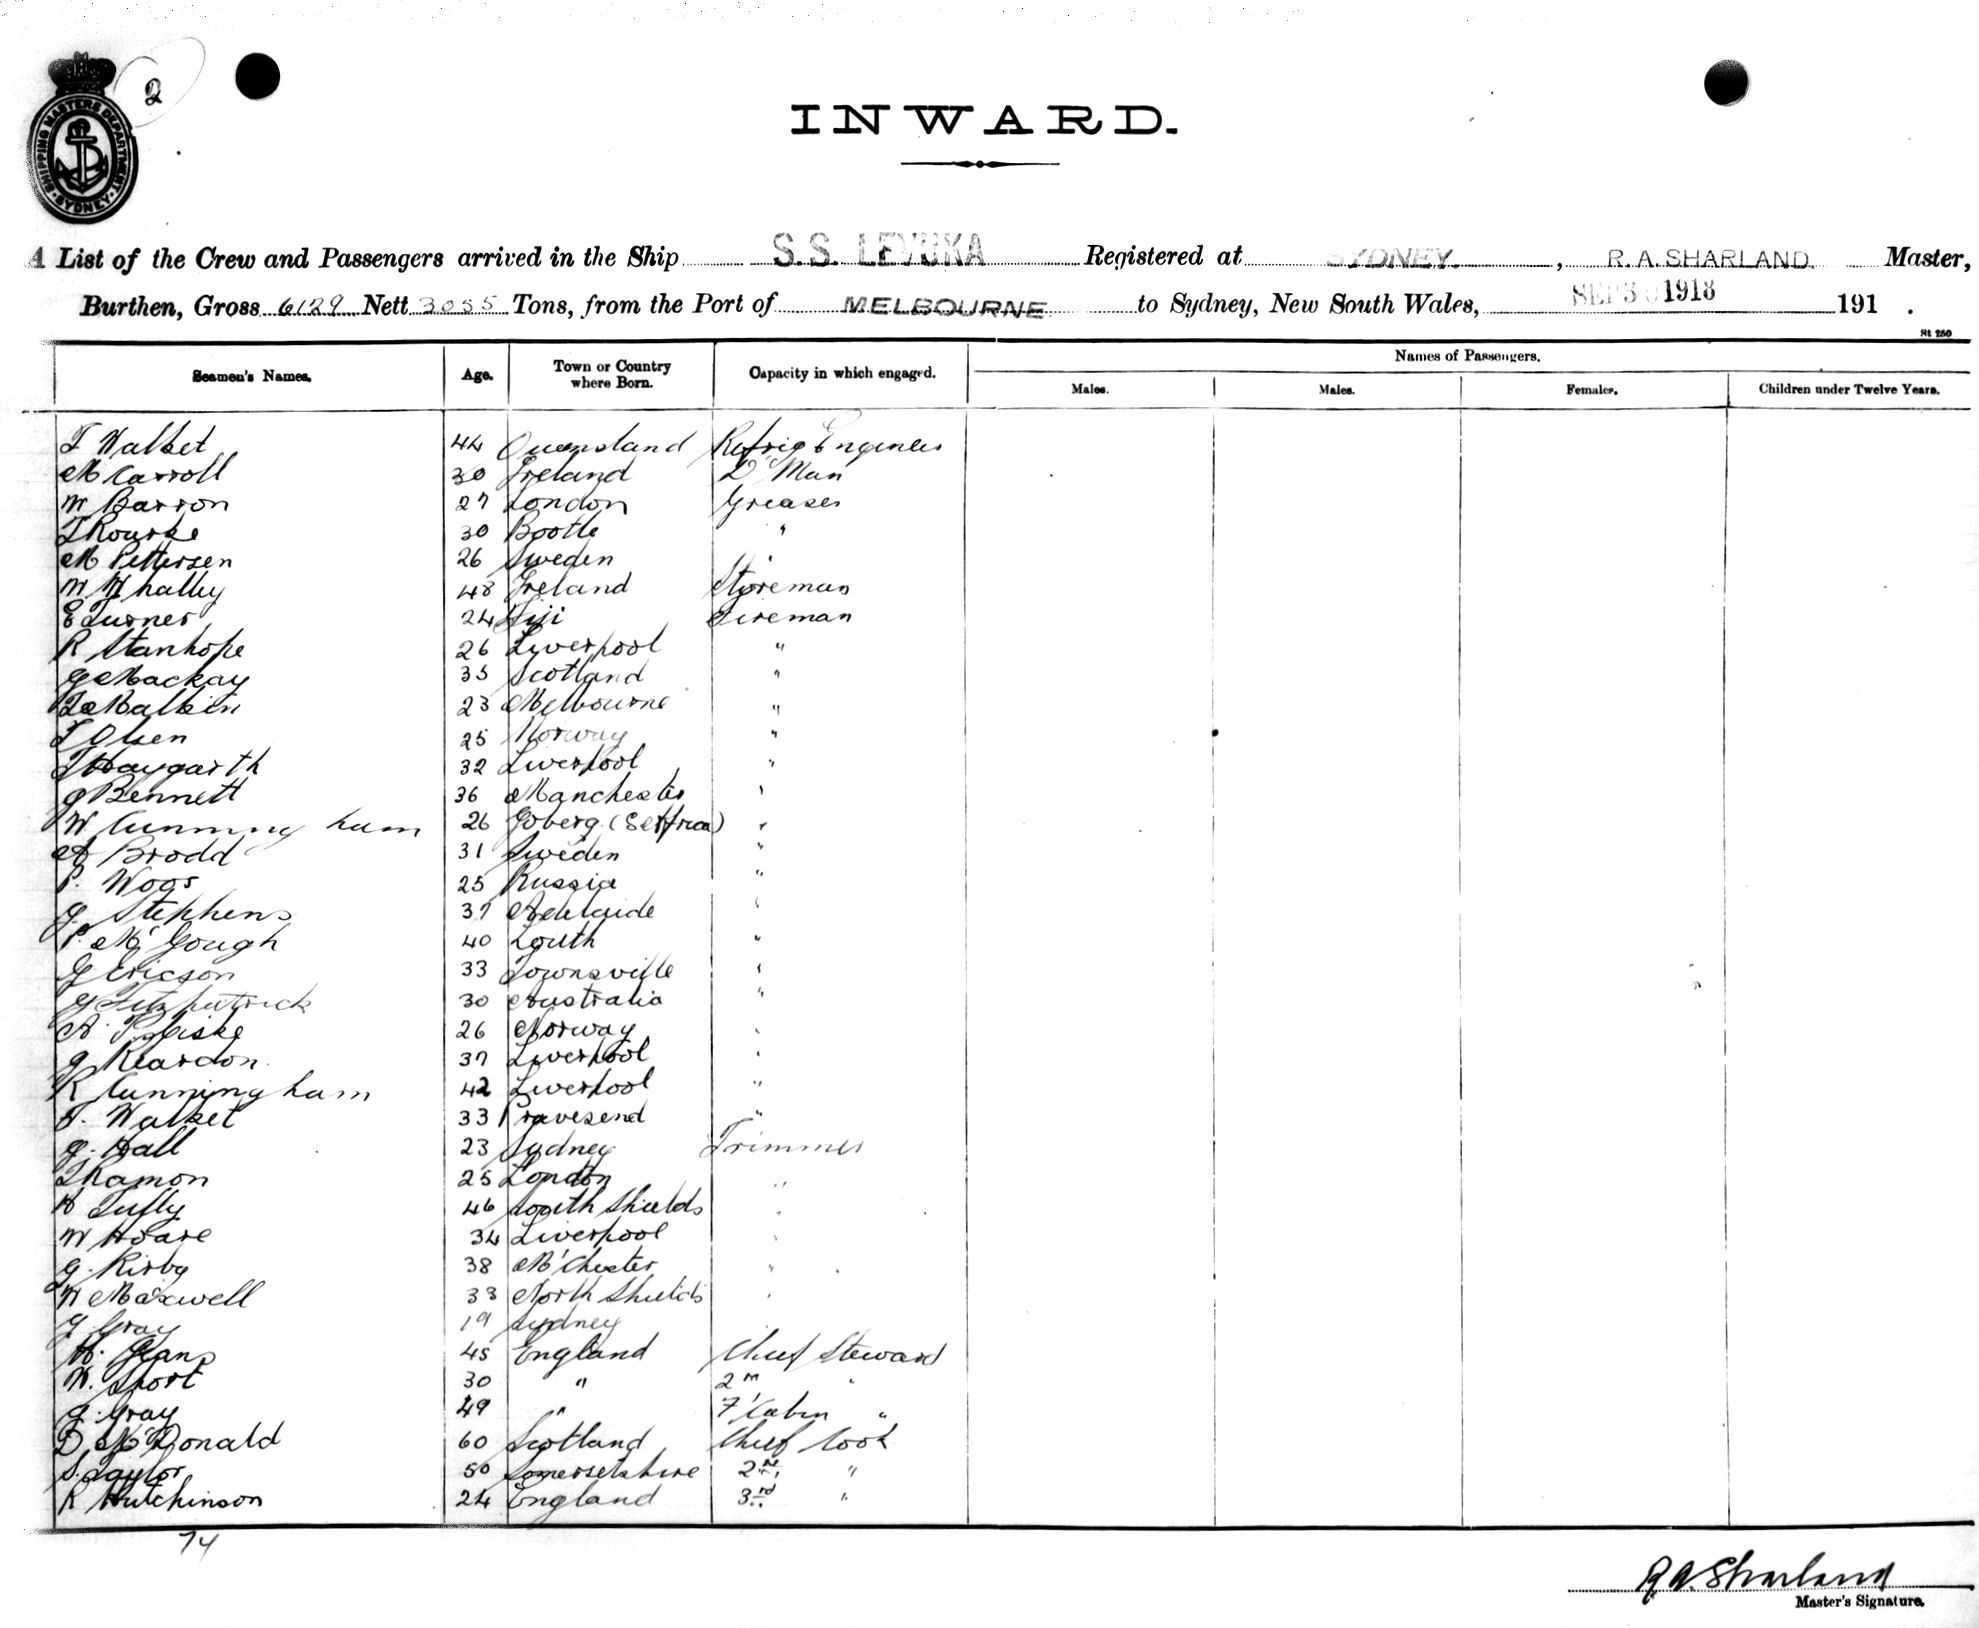 2
SHIPPING MASTERS DEPARTMENT
SYDNEY
INWARD.
A List of the Crew and Passengers arrived in the Ship S.S. LEVUKA Registered at SYDNEY. , R. A. SHARLAND. Master,
Burthen, Gross 6129 Nett 3055 Tons, from the Port of MELBOURNE to Sydney, New South Wales, SEP 30 1918 191 .
St 250
Seamen's Names. Age. Town or Country where Born. Capacity in which engaged. Names of Passengers.
Males. Males. Females. Children under Twelve Years.
T Walket 44 Queensland Refrig Engineer
M Carroll 30 Ireland D' Man
W Barron 27 London Greaser
T Rourke 30 Bootle "
M Pettersen 26 Sweden "
W Whalley 48 Ireland Storeman
E Turner 24 Fiji Fireman
R Stanhope 26 Liverpool "
G Mackay 35 Scotland "
Malkin 23 Melbourne "
T Olsen 25 Norway "
T Haygarth 32 Liverpool "
G Bennett 36 Manchester "
W Cunningham 26 Joberg (S Africa) "
A Brodd 31 Sweden "
P. Woos 25 Russia "
G. Stephens 37 Adelaide "
P. Mc Gough 40 Louth "
G Ericson 33 Townsville "
G Fitzpatrick 30 Australia "
A. 26 Norway "
G Reardon. 37 Liverpool "
R Cunningham 42 Liverpool "
T. Walket 33 Gravesend "
G. Hall 23 Sydney Trimmer
T Ramon 25 London "
H Tully 46 South Shields "
W Hoare 34 Liverpool "
G. Kirby 38 M'Chester "
W Maxwell 33 North Shields "
G Gray 19 Sydney
H. Jeans 45 England Chief Steward
W. Short 30 " 2nd "
G. Gray 49 " F' Cabin "
D McDonald 60 Scotland Chief Cook
S. Taylor 50 Somersetshire 2nd "
R Hutchinson 24 England 3rd "
74
R. A. Sharland
Master's Signature.